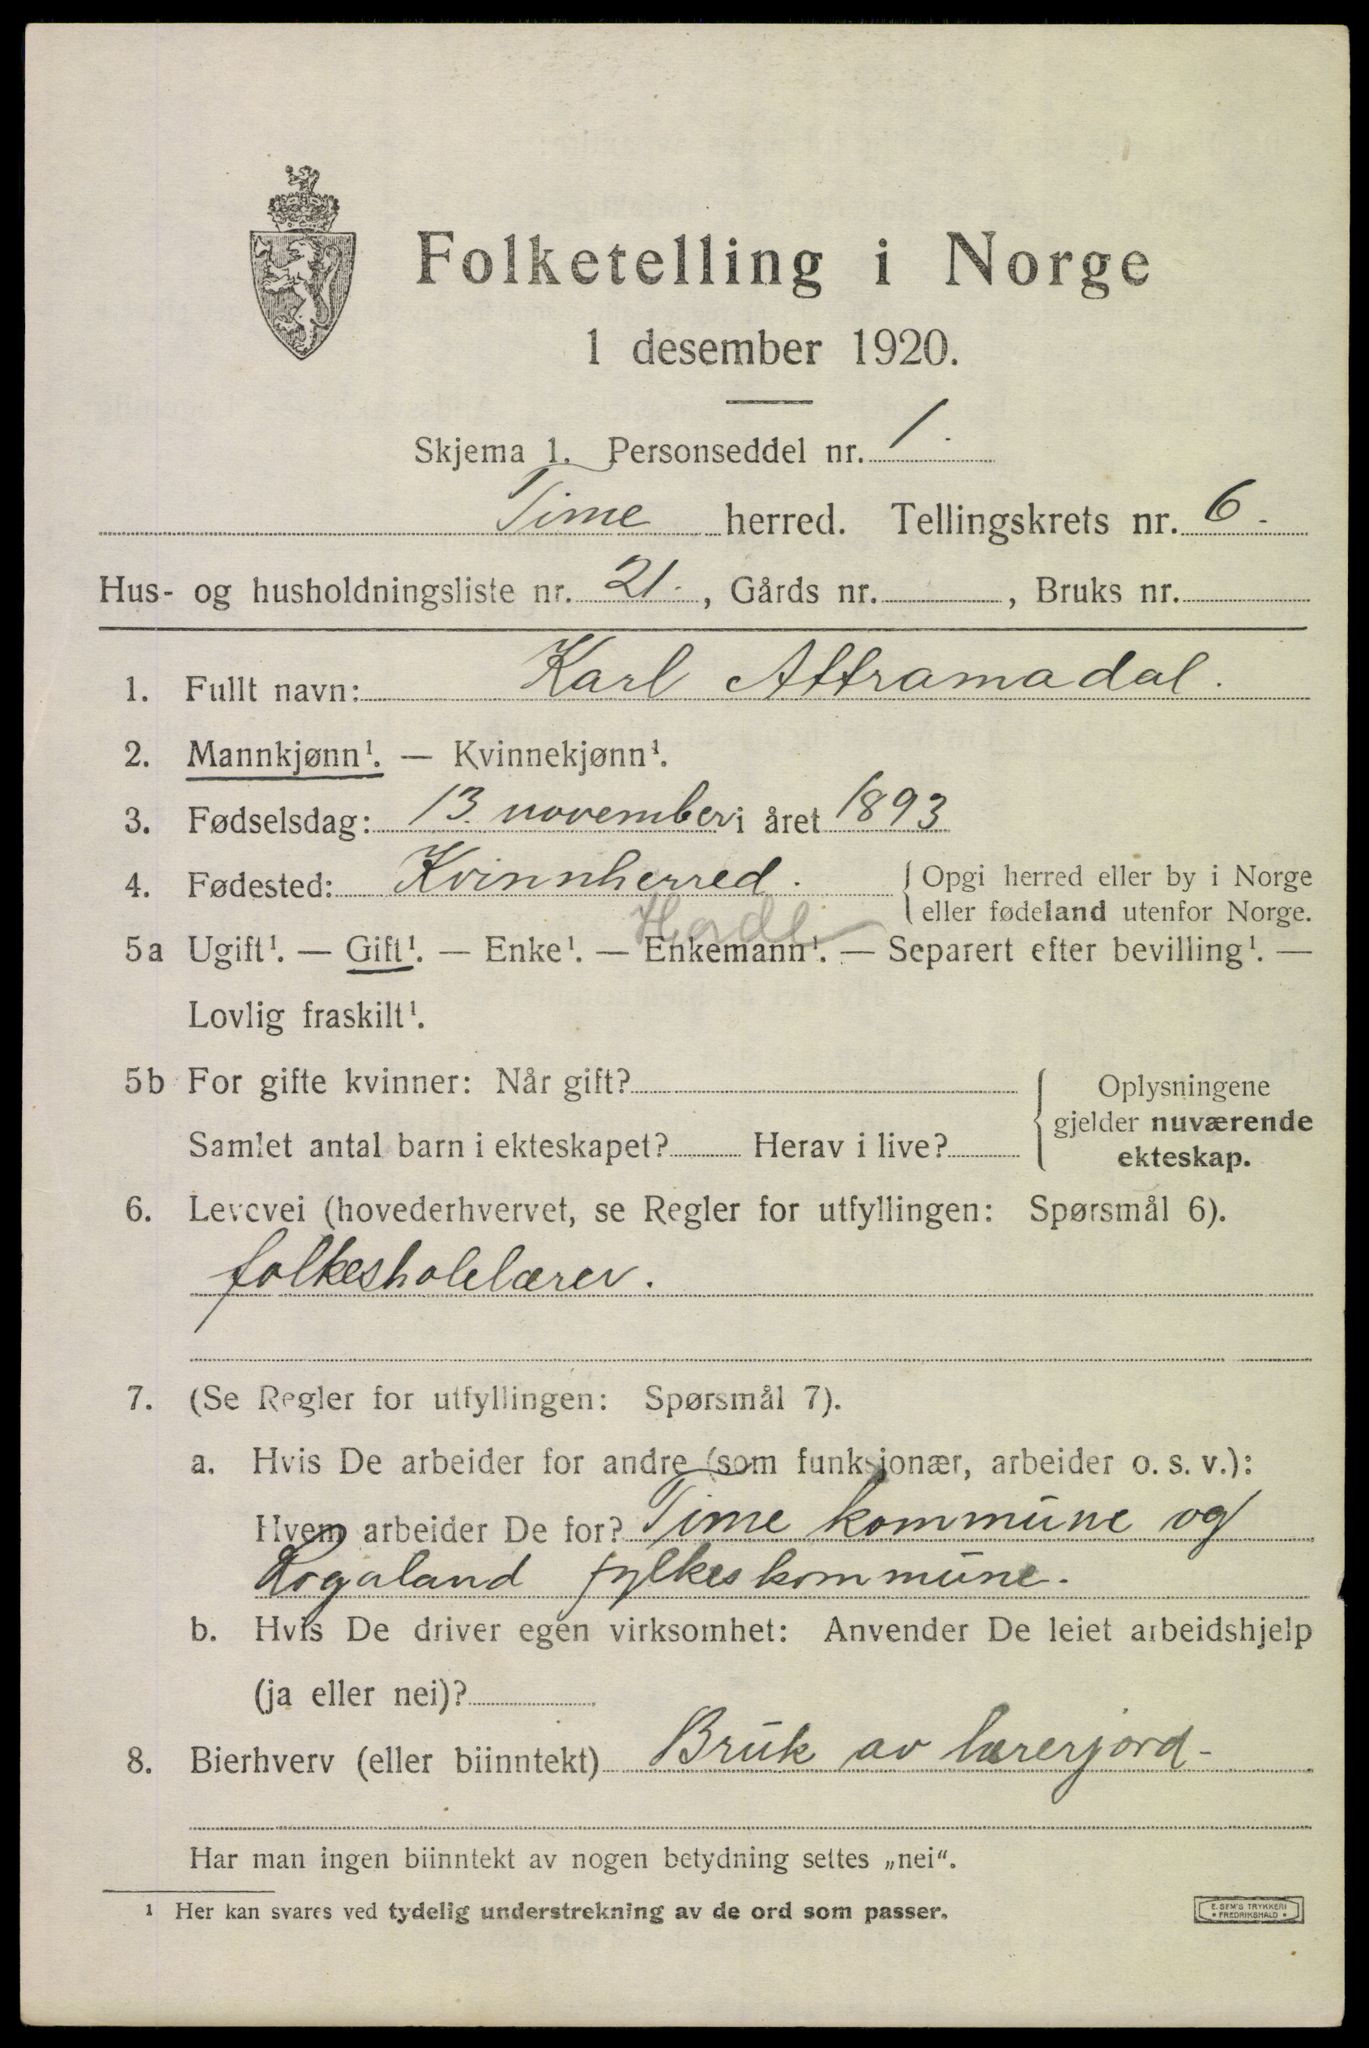 Folketelling i Norge
1 desember 1920.
Skjema 1. Personseddel nr. 1.
Time herred. Tellingskrets nr. 6.
Hus- og husholdningsliste nr. 21., Gårds nr. , Bruks nr.
1. Fullt navn: Karl Attramadal.
2. Mannkjønn¹. — Kvinnekjønn¹.
3. Fødselsdag: 13. november i året 1893
4. Fødested: Kvinnherred. { Opgi herred eller by i Norge
eller fødeland utenfor Norge.
Hordl
5a Ugift¹. — Gift¹. — Enke¹. — Enkemann¹. — Separert efter bevilling¹. —
Lovlig fraskilt¹.
5b For gifte kvinner: Når gift? { Oplysningene
gjelder nuværende
Samlet antal barn i ekteskapet? Herav i live? ekteskap.
6. Levevei (hovederhvervet, se Regler for utfyllingen: Spørsmål 6).
folkesholelærer.
7. (Se Regler for utfyllingen: Spørsmål 7).
a. Hvis De arbeider for andre (som funksjonær, arbeider o. s. v.):
Hvem arbeider De for? Time kommune og
Rogaland fylkeskommune.
b. Hvis De driver egen virksomhet: Anvender De leiet arbeidshjelp
(ja eller nei)?
8. Bierhverv (eller biinntekt) Bruk av lærerjord-
Har man ingen biinntekt av nogen betydning settes „nei“.
¹ Her kan svares ved tydelig understrekning av de ord som passer.
E. SEM'S TRYKKERI
• FREDRIKSHALD •